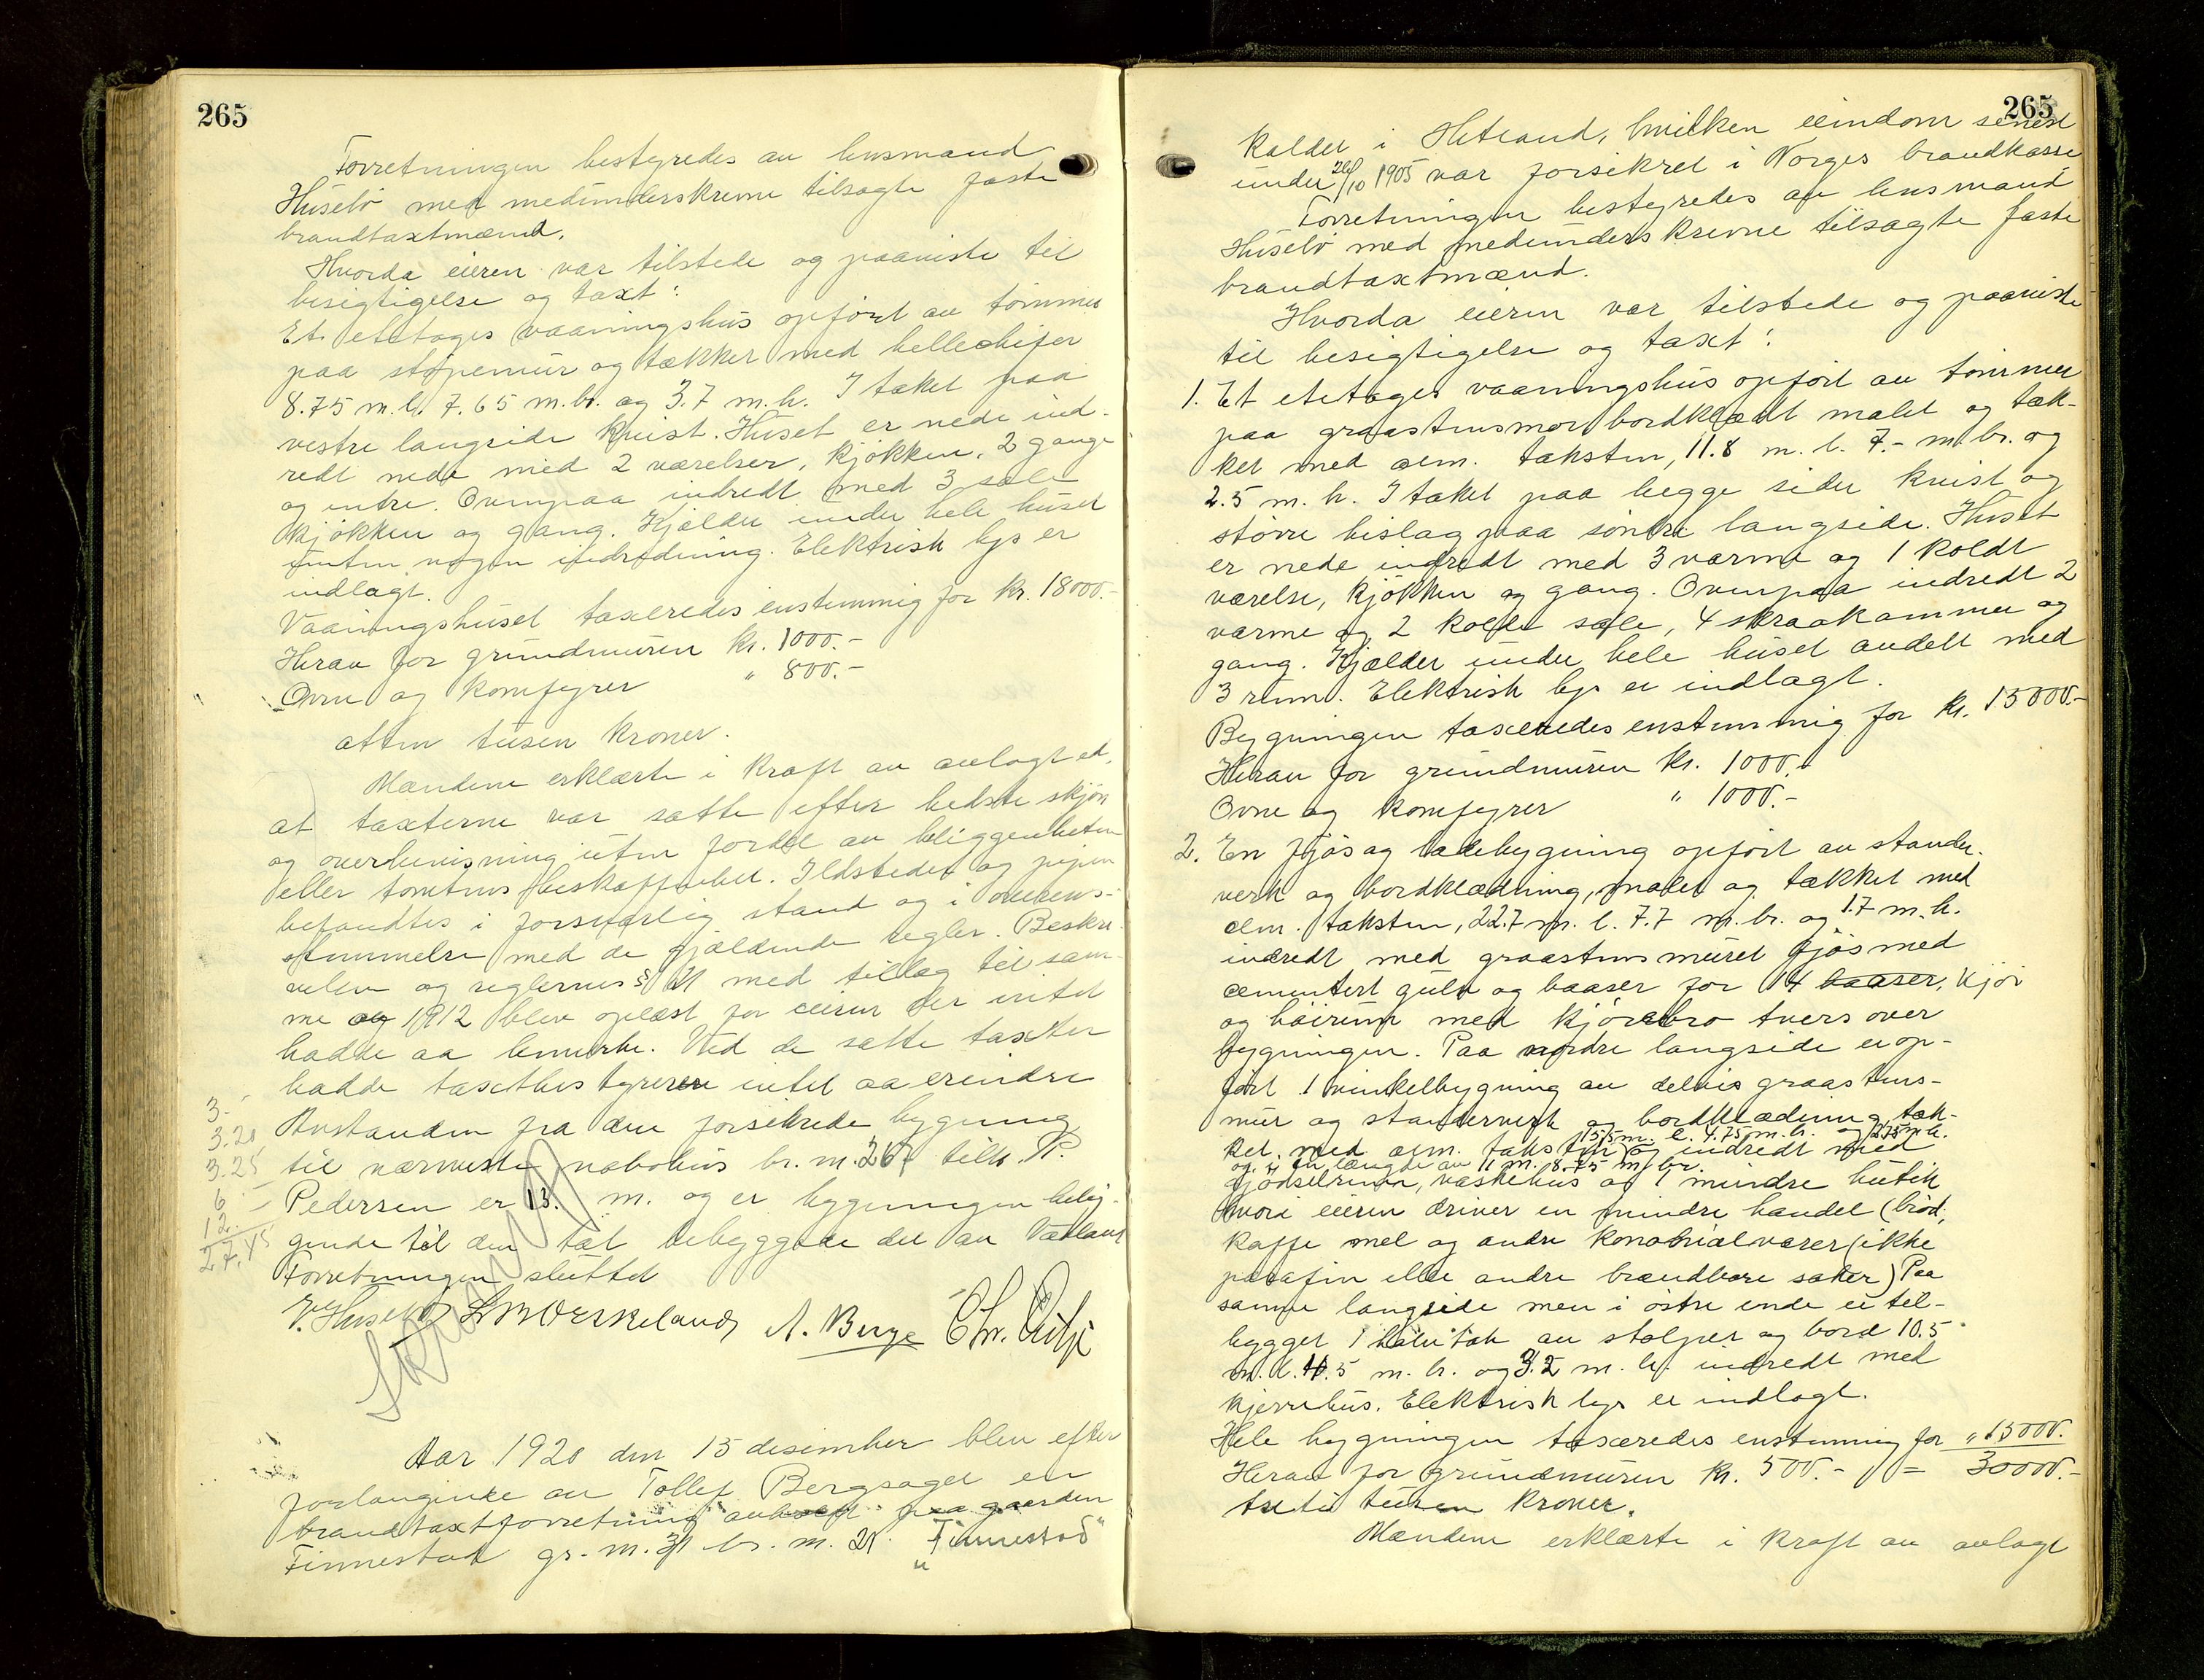 265
Forretningen bestyredes av lensmand
Husebö med medunderskrevne tilsagte faste
brandtaxtmænd.
Hvorda eieren var tilstede og paaviste til
besigtigelse og taxt:
Et etetages vaaningshus opført av tømmer
paa støpemur og tækket med helleskifer
8.75 m.l. 7.65 m.br. og 3.7 m.h. I taket paa
vestre langside kvist. Huset er nede ind-
redt nede med 2 værelser, kjøkken, 2 gange
og entre. Ovenpaa indredt med 3 sale
kjøkken og gang. Kjælder under hele huset
uten nogen indredning. Elektrisk lys er
indlagt.
Vaaningshuset taxeredes enstemmig for kr. 18000.-
Herav for grundmuren kr. 1000.-
Ovne og komfyrer " 800.-
atten tusen kroner.
Mændene erklærte i kraft av avlagt ed,
at taxterne var satte efter bedste skjøn
og overbevisning uten fordel av beliggenheten
eller tomtens beskaffenhet. Ildsteder og piper
befandtes i forsvarlig stand og i overens-
stemmelse med de gjældende regler. Beskri-
velsen og reglernes § 21 med tillæg til sam-
me av 1912 blev oplæst for eieren der intet
hadde aa bemerke. Ved de satte taxter
hadde taxtbestyreren intet aa erindre
Avstanden fra den forsikrede bygning
til nærmeste nabohus br. nr. 267 tilh. P.
Pedersen er 13. m. og er bygningen belig-
gende til den tæt bebyggede del av Vadland
Forretningen sluttet
V. Husebö L M Verkeland A. Berge Chr. Eitje
3.-
3.20
3.25
6.-
12.
27.45
Aar 1920 den 15 desember blev efter
forlangende av Tollef Bergsagel en
brandtaxtforretning avholdt paa gaarden
Finnestad gr. nr. 31 br. nr. 21 "Finnestad"
265
kaldet i Hetland, hvilken eiendom senest
under 20/10 1905 var forsikret i Norges brandkasse
Forretningen bestyredes av lensmand
Husebö med medunderskrevne tilsagte faste
brandtaxtmænd.
Hvorda eieren var tilstede og paaviste
til besigtigelse og taxt:
1. Et etetages vaaningshus opført av tømmer
paa graastensmur bordklædt malet og tæk-
ket med alm. taksten, 11.8 m. l. 7.- m.br. og
2.5 m. h. I taket paa begge sider kvist og
større bislag paa søndre langside. Huset
er nede indredt med 3 varme og 1 koldt
værelse, kjøkken og gang. Ovenpaa indredt 2
varme og 2 kolde sale, 4 skraakammer og
gang. Kjælder under hele huset avdelt med
3 rum. Elektrisk lys er indlagt.
Bygningen taxeredes enstemmig for kr. 15000.-
Herav for grundmuren kr. 1000.-
Ovne og komfyrer " 1000.-
2. En fjøs og ladebygning opført av stender-
verk og bordklædning, malet og tækket med
alm. taksten, 22.7 m. l. 7.7 m. br. og 1.7 m. h.
indredt med graastensmuret fjøs med
cementert gulv og baaser for 14 baaser, kjør
og høirum med kjørebro tvers over
bygningen. Paa nordre langside er op-
ført 1 vinkelbygning av delvis graastens-
mur og stenderverk og bordklædning tæk-
ket med alm. taksten 15.5 m. l. 4.75 m. br. og 2.75 m h. og indredt med
og i en længde av 11 m. 8.75 m br.
gjødselrum, vaskehus og 1 mindre butik
hvori eieren driver en mindre handel (brød,
kaffe mel og andre kolonialvarer (ikke
parafin eller andre brændbare saker) Paa
samme langside men i østre ende er til-
bygget 1 halvtak av stolper og bord 10.5
m. l. 4.5 m. br. og 3.2 m. h. indredt med
kjerrehus. Elektrisk lys er indlagt.
Hele bygningen taxeredes enstemmig for " 15000.
Herav for grundmuren kr. 500.- = 30000.-
tretti tusen kroner.
Mændene erklærte i kraft av avlagt